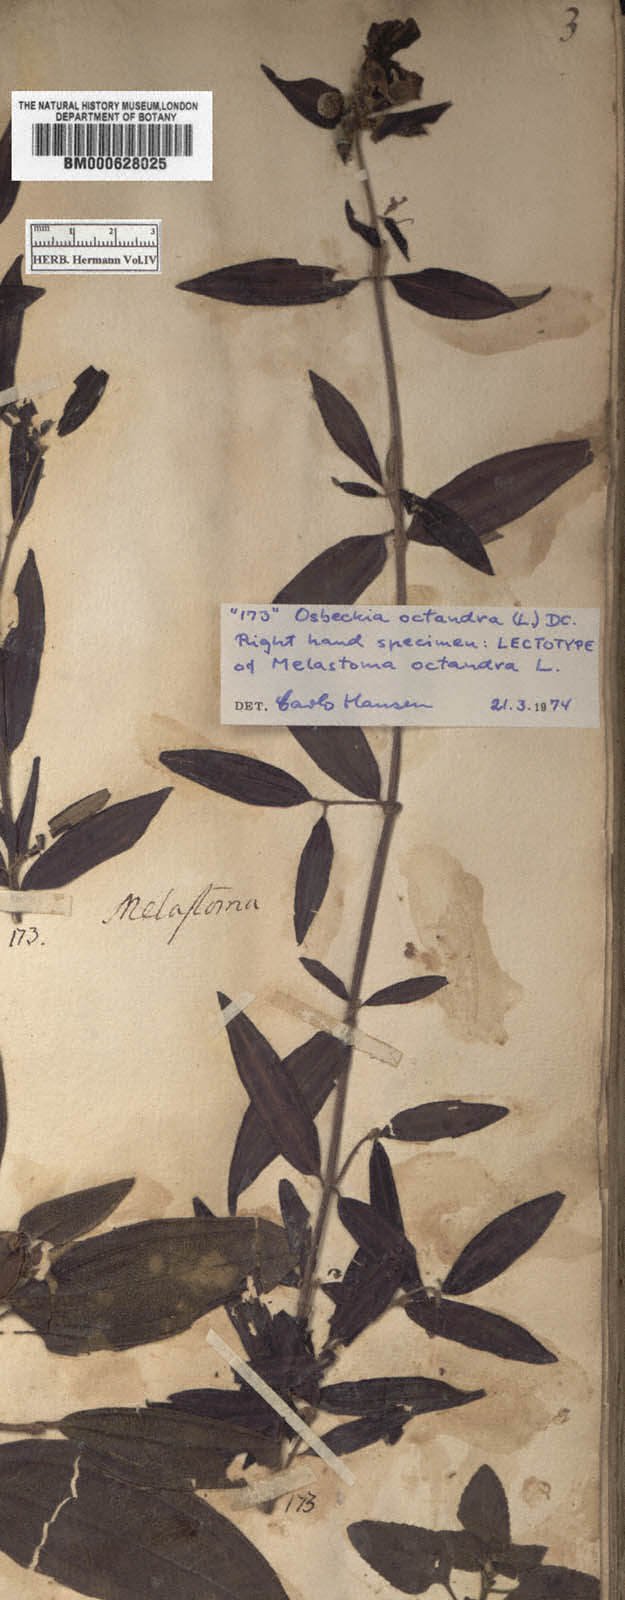 3
THE NATURAL HISTORY MUSEUM, LONDON
DEPARTMENT OF BOTANY
BM000628025
mm 1 2 3
HERB. Hermann Vol.IV
"173" Osbeckia octandra (L.) DC.
Right hand specimen: LECTOTYPE
of Melastoma octandra L.
DET. Carlo Hansen 21.3.1974
Melastoma
173.
173